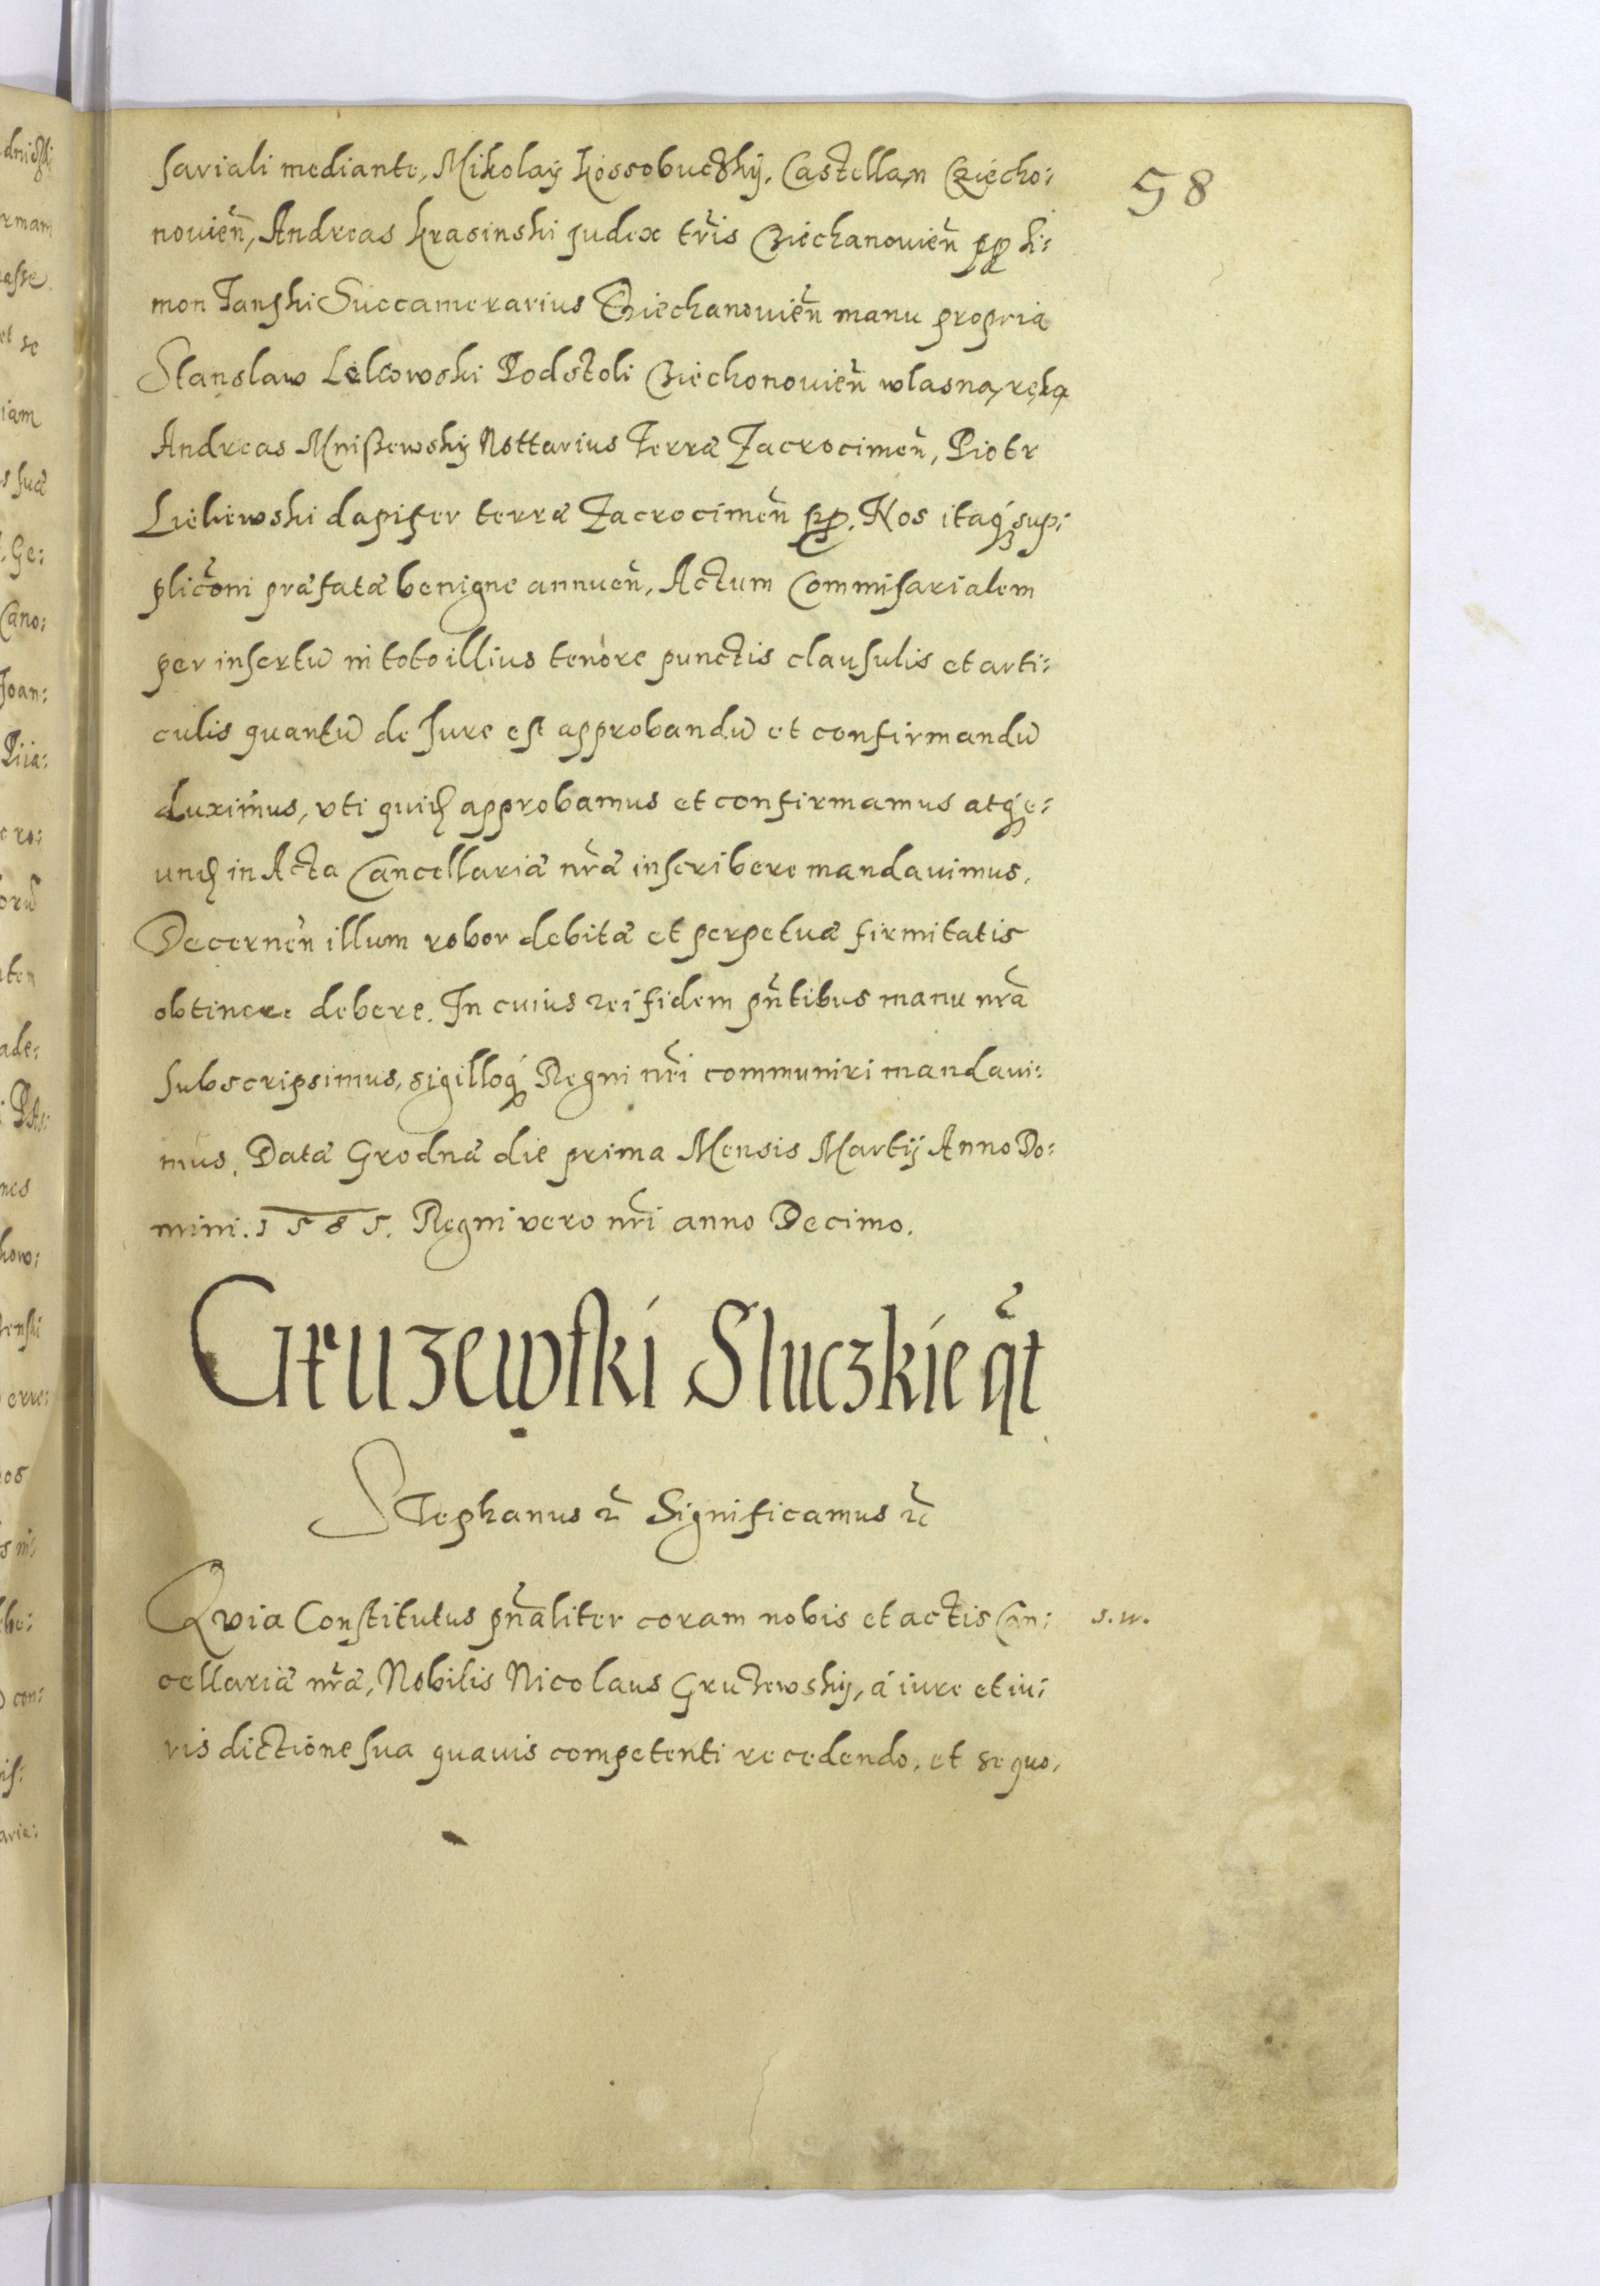 58
sariali mediante, Mikolaÿ Kossobuczkÿ, Castellan Cziecho:
novien̄, Andreas Krasinski judex tr̄is Cziechanovien̄ pp ki:
mon Tanski Succamerarius Cziechanovien̄ manu propria
Stanslaw Lelowski Podstoli Cziechonovien̄ wlasna ręką
Andreas Mnißewskÿ Nottarius Terræ Zacrocimen̄, Piotr
Liekiewski dapifer terræ Zacrocimen̄ pp. Nos itaq́ sup:
plicōni præfatæ benigne annuen̄, Actum Commisarialem
per insertū in toto illius tenore punctis clausulis et arti:
culis quantū de Jure est approbandū et confirmandū
duximus, vti quidē approbamus et confirmamus atq́ e:
undē in Acta Cancellariæ nr̄æ inscribere mandavimus.
Decernen̄ illum robor debitæ et perpetuæ firmitatis
obtinere debere. In cuius rei fidem pn̄tibus manu nr̄a
subscripsimus, sigilloq́ Regni nr̄i communiri mandavi:
mus. Datæ Grodnæ die prima Mensis Martij Anno Do:
mini. 1585. Regni vero nr̄i anno Decimo.
Gruzewski Sluczkie q̄t
Stephanus &c Significamus &c
Qvia Constitutus pn̄aliter coram nobis et actis Can: s. n.
cellariæ nr̄æ, Nobilis Nicolaus Gruzewskÿ, á iure et iu:
ris dictione sua quavis competenti recedendo, et se quo,